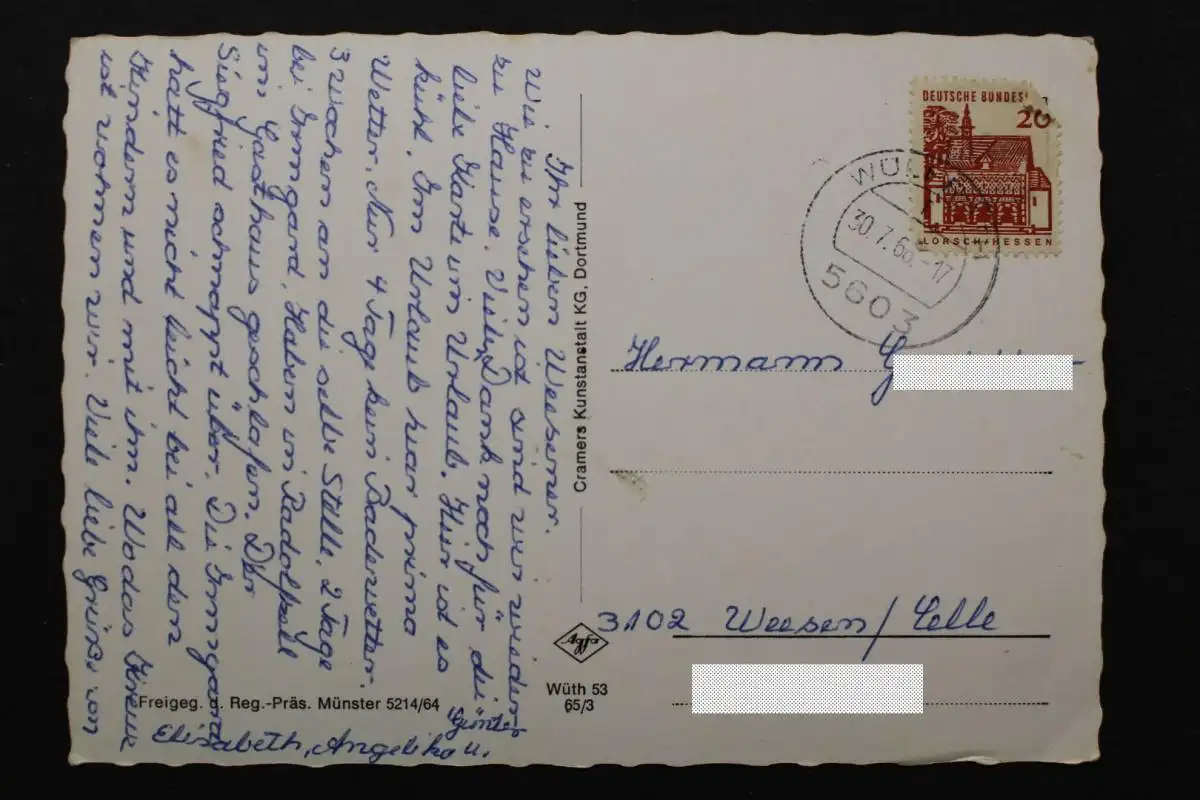 Ihr lieben Weesener.
Wie zu ersehen ist sind wir wieder
zu Hause. Vielen Dank noch für die
liebe Karte im Urlaub. Hier ist es
kühl. Im Urlaub war prima
Wetter. Nur 4 Tage kein Badewetter.
3 Wochen an die selbe Stelle. 2 Tage
bei Irmgard. Haben in Radolfzell
im Gasthaus geschlafen. Der
Siegfried schnappt über. Die Irmgard
hatt es nicht leicht bei all den
Kindern und mit im. Wo das Kreuz
ist wohnen wir. Viele liebe Grüße von
Elisabeth, Angelika u.
Günter
Freigeg. d. Reg.-Präs. Münster 5214/64
Cramers Kunstanstalt KG, Dortmund
Agfa
Wüth 53
65/3
DEUTSCHE BUNDES
20
LORSCH/HESSEN
30.7.66.-17
5603
Hermann G
3102 Weesen/Celle